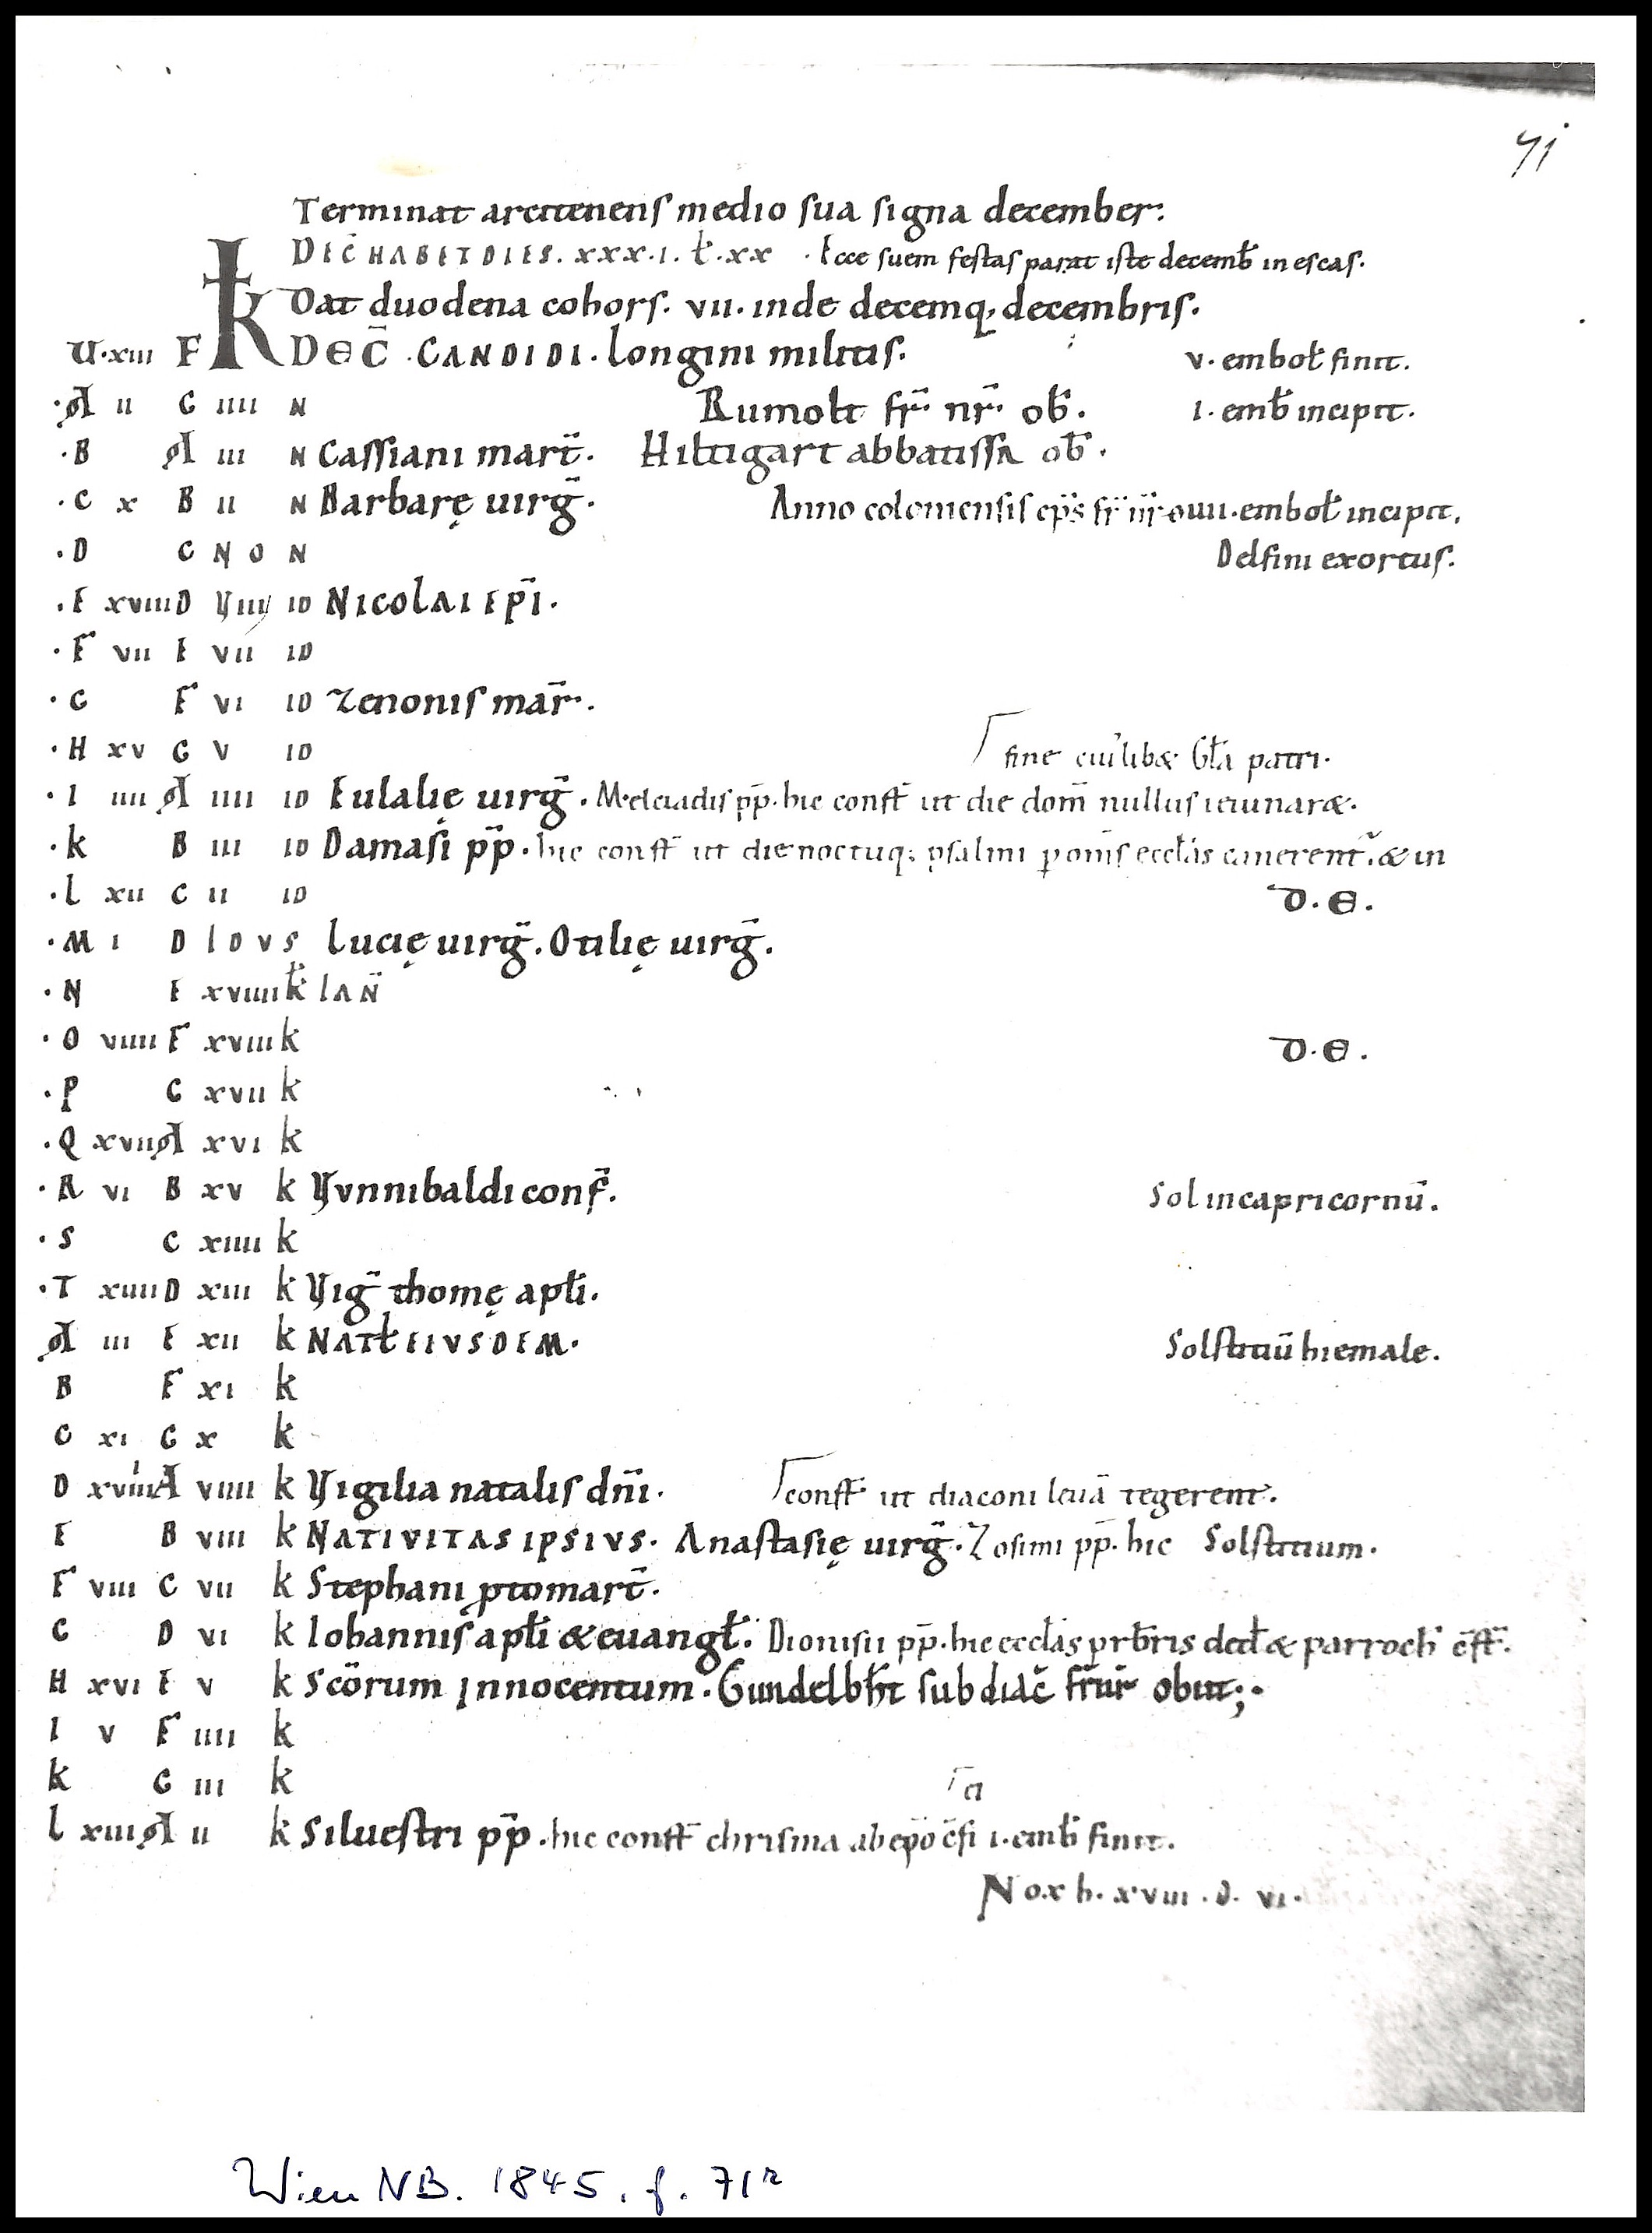 71
Terminat arcitenens medio sua signa december:
DEC̄ HABET DIES. xxx.i. ł. xx. Ecce suem festas parat iste decemb̄ in escas.
Dat duodena cohors. vii. inde decemq; decembris.
U. xiii F K DEC̄. CANDIDI. Longini militis. v. embol̄ finit.
.A ii G iiii N Rumolt fr̄ nr̄ ob̄. i. emb̄ incipit.
.B A iii N Cassiani mart̄. Hiltigart abbatissa ob̄.
.C x B ii N Barbarę uirḡ. Anno coloniensis ep̄s fr̄ embol̄ incipit.
.D C NON Delfini exortus.
.E xviii D Viii ID NICOLAI EP̄I.
.F vii E vii ID
.G F vi ID Zenonis mar̄.
.H xv G v ID fine cuiuslibet Gl̄a patri.
.I iiii A iiii ID Eulalię uirḡ. Melciadis pp̄. hic const̄ ut die dom̄ nullus ieiunaret.
.K B iii ID Damasi pp̄. hic const̄ ut die noctuq; psalmi p om̄s eccl̄as canerent̄. & in
.L xii C ii ID D. E.
.M i D IDVS Lucię uirḡ. Otilię uirḡ.
.N E xviiii k̄ IAN̄
.O viiii F xviii k D. E.
.P G xvii k
.Q xvii A xvi k
.R vi B xv k Vvnnibaldi conf̄. Sol in capricornū.
.S C xiiii k
.T xiiii D xiii k Viḡ thomę apl̄i.
A iii E xii k NATL̄ EIVSDEM. Solstitiū hiemale.
B F xi k
C xi G x k
D xviiii A viiii k Vigilia natalis dn̄i. const̄ ut diaconi leuā tegerent.
E B viii k NATIVITAS IPSIVS. Anastasię uirḡ. Zosimi pp̄. hic Solstitium.
F viii C vii k Stephani ptomart̄.
G D vi k Iohannis apl̄i & euangl̄. Dionisii pp̄. hic eccl̄as prb̄ris ded̄ & parroch̄ c̄st̄.
H xvi E v k Scōrum Innocentum. Gundelbh̄t subdiac̄ fr̄ nr̄ obiit;.
I v F iiii k
K G iii k ci
L xiii A ii k Siluestri pp̄. hic const̄ chrisma ab ep̄o c̄fi i. emb̄ finit.
Nox h. xviii. d. vi.
Wien NB. 1845. f. 71r